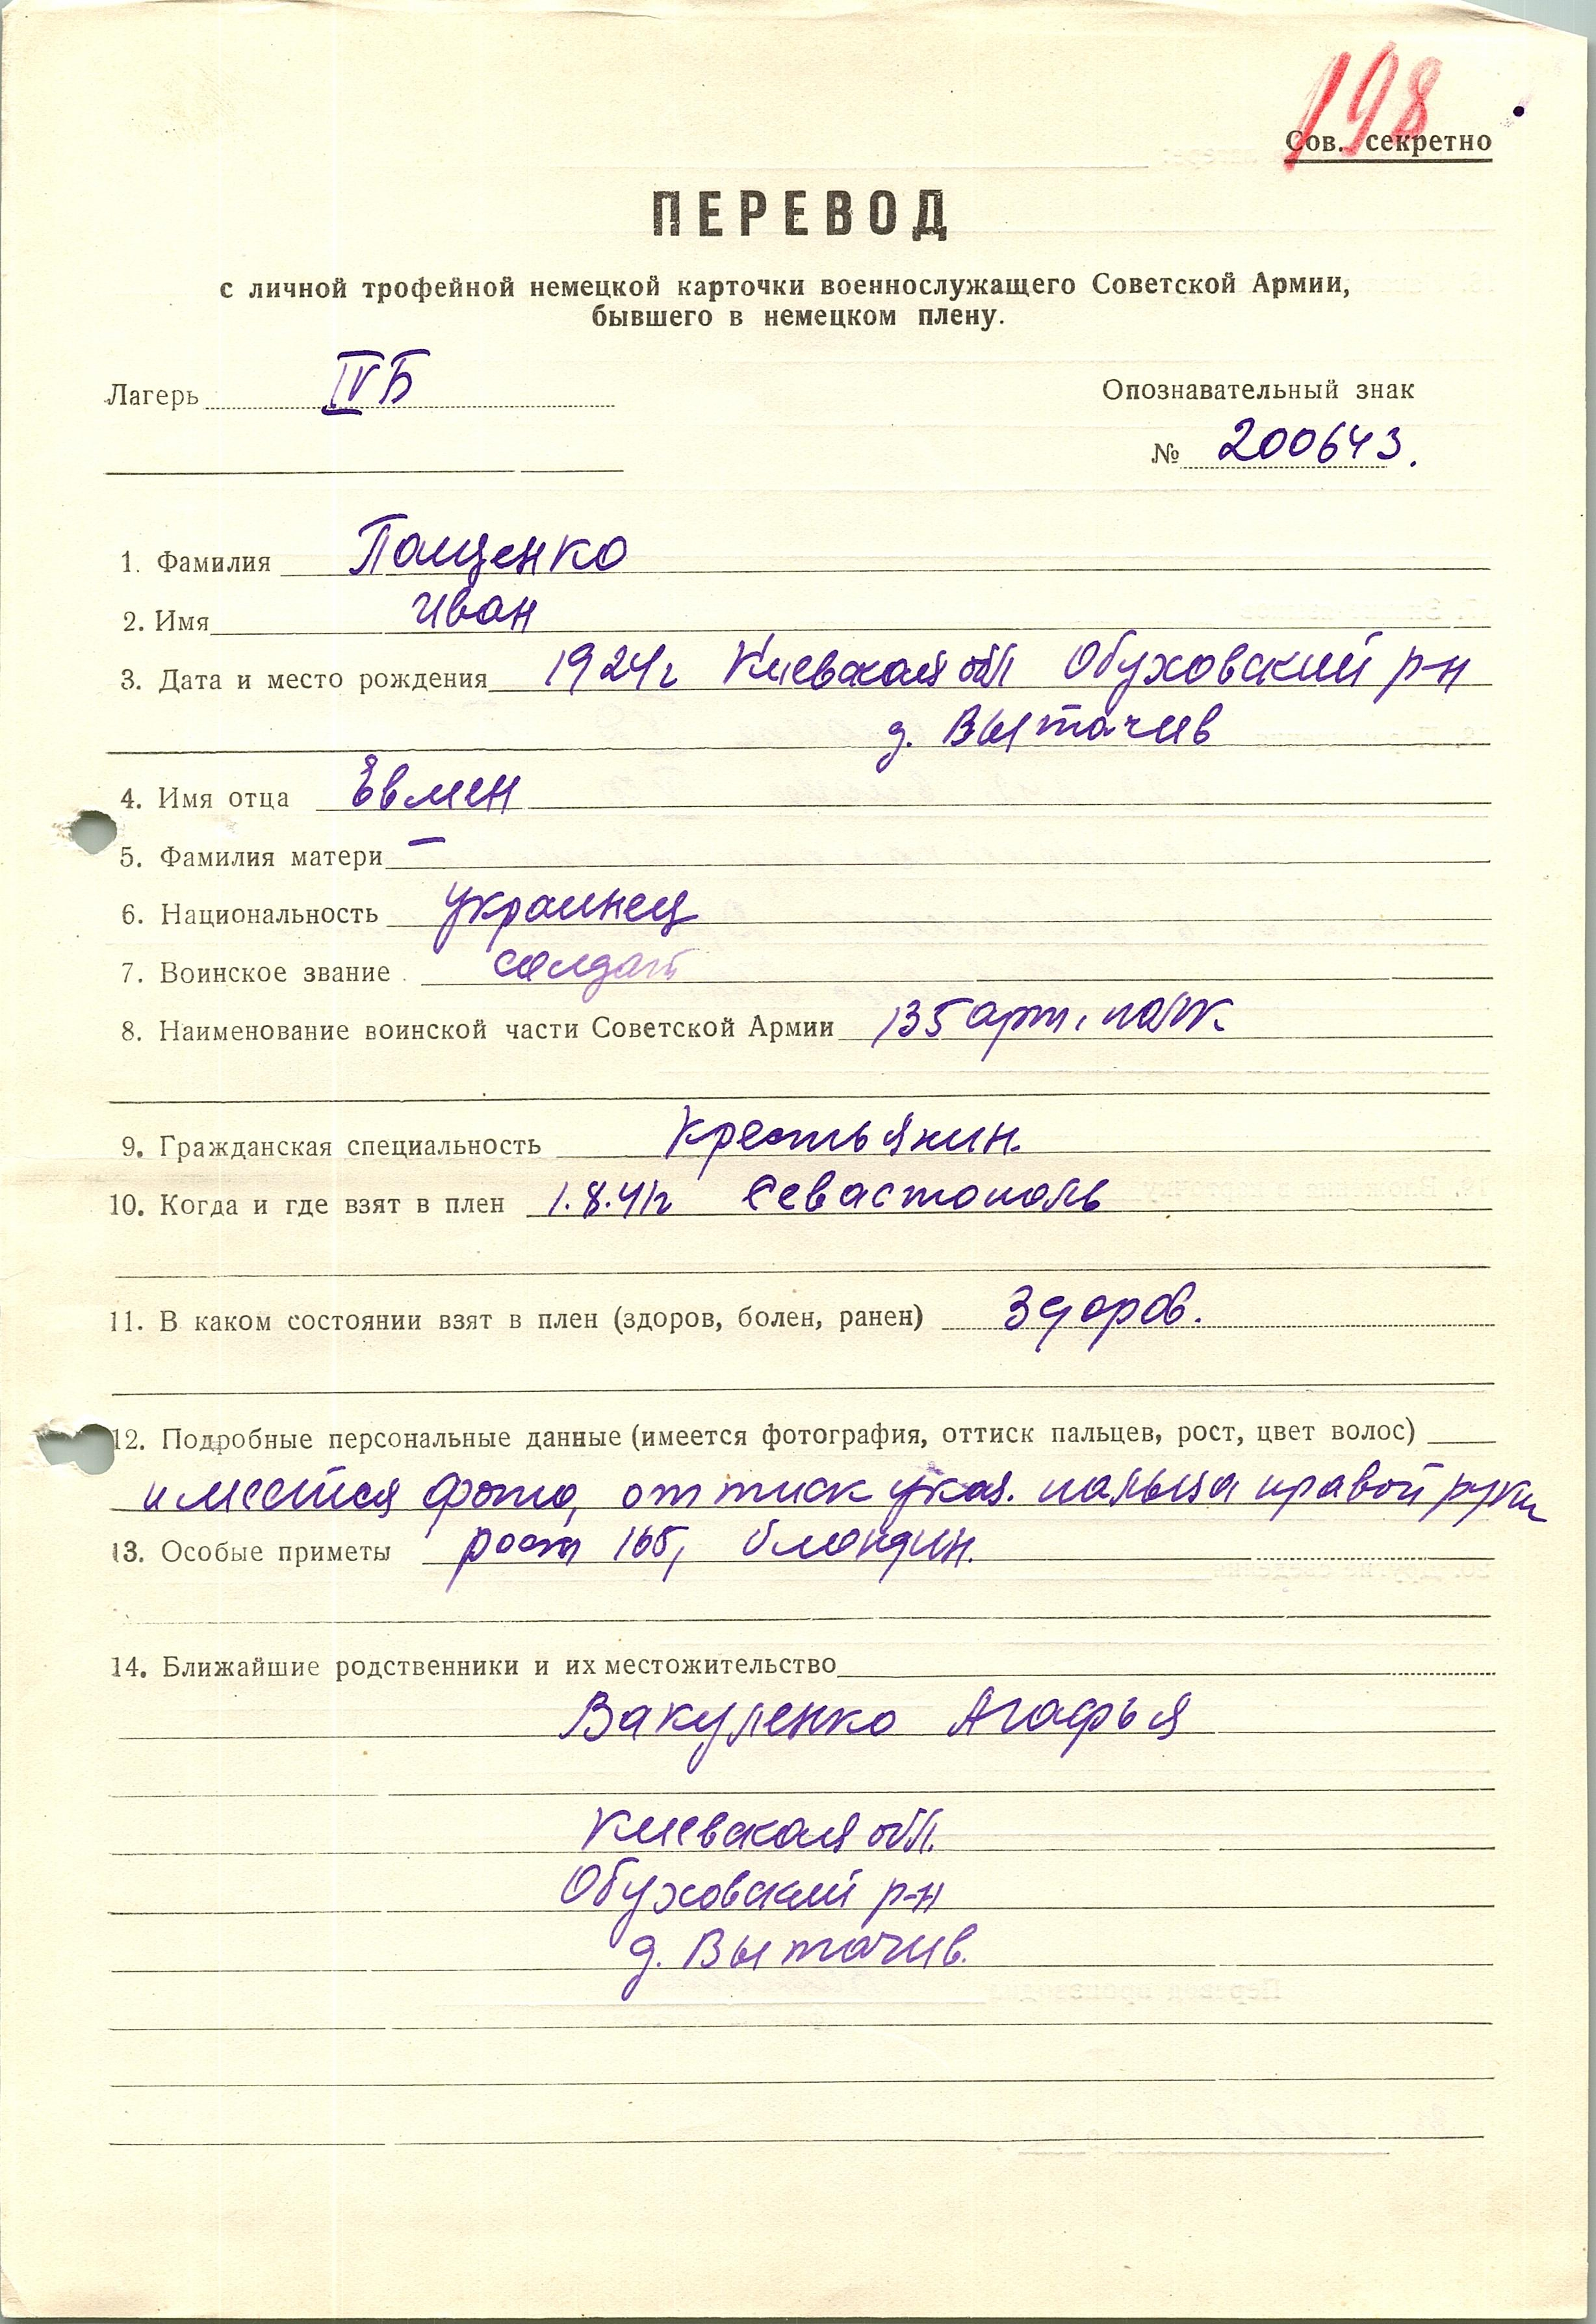 198
Сов. секретно
ПЕРЕВОД
с личной трофейной немецкой карточки военнослужащего Советской Армии,
бывшего в немецком плену.
Лагерь IVБ
Опознавательный знак
№ 200643.
1. Фамилия Пащенко
2. Имя Иван
3. Дата и место рождения 1924г Киевская обл Обуховский р-н
д. Вытачив
4. Имя отца Евмен
5. Фамилия матери —
6. Национальность украинец
7. Воинское звание солдат
8. Наименование воинской части Советской Армии 135 арт. полк.
9. Гражданская специальность крестьянин.
10. Когда и где взят в плен 1.8.41г Севастополь
11. В каком состоянии взят в плен (здоров, болен, ранен) Здоров.
12. Подробные персональные данные (имеется фотография, оттиск пальцев, рост, цвет волос)
имеется фото, оттиск указ. пальца правой руки
13. Особые приметы рост 165, блондин.
14. Ближайшие родственники и их местожительство
Вакуленко Агафья
Киевская обл.
Обуховский р-н
д. Вытачив.